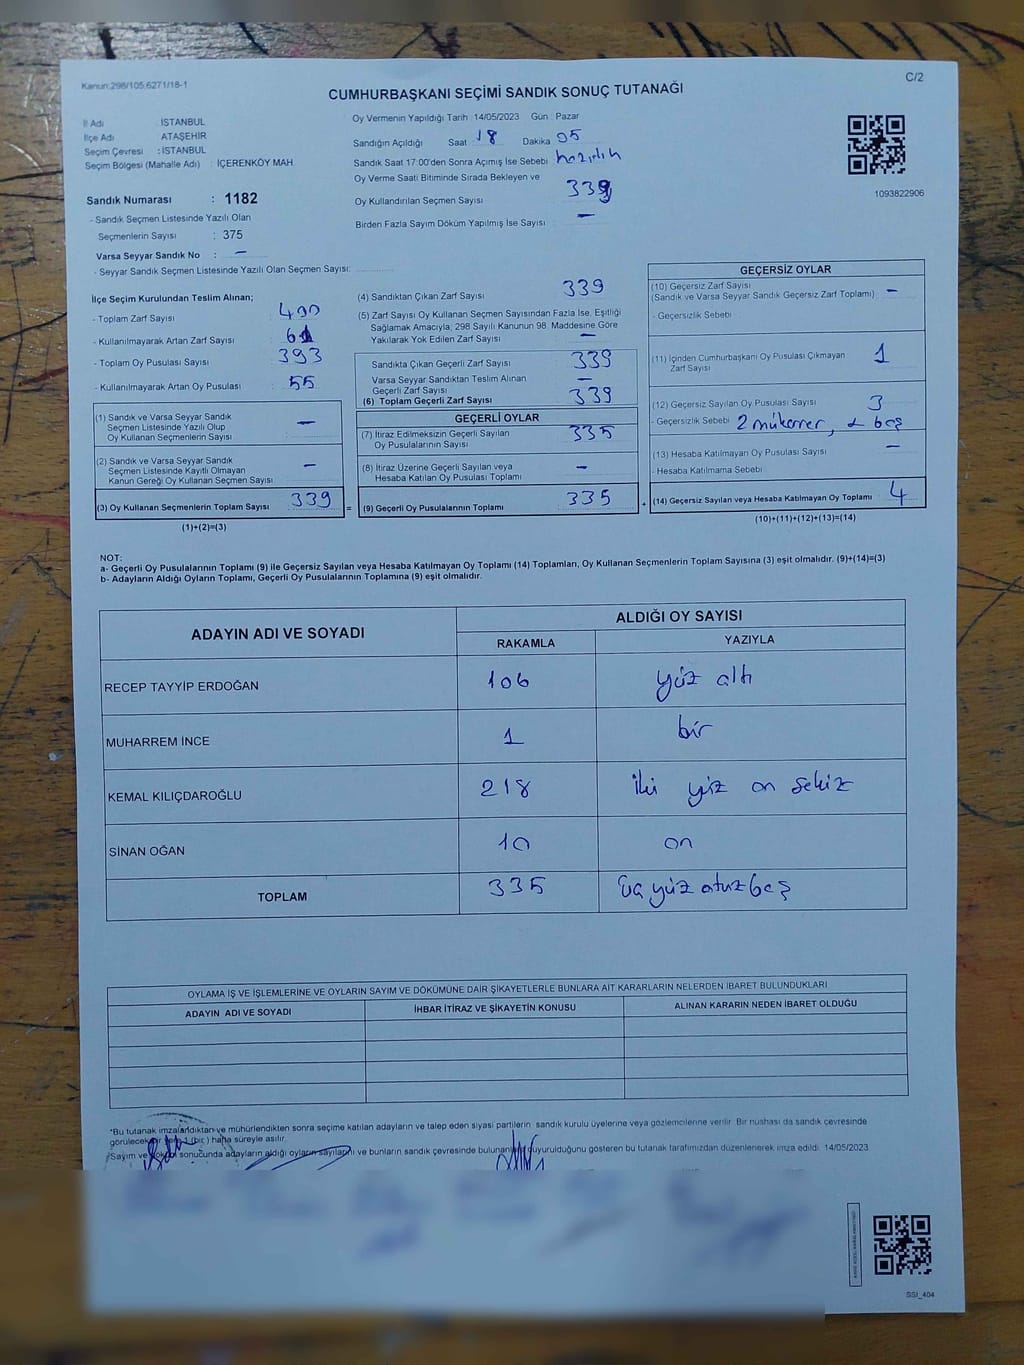 Kanun:298/105;6271/18-1
C/2
CUMHURBAŞKANI SEÇİMİ SANDIK SONUÇ TUTANAĞI
İl Adı : İSTANBUL
İlçe Adı : ATAŞEHİR
Seçim Çevresi : İSTANBUL
Seçim Bölgesi (Mahalle Adı) : İÇERENKÖY MAH.
Sandık Numarası : 1182
- Sandık Seçmen Listesinde Yazılı Olan
Seçmenlerin Sayısı : 375
Varsa Seyyar Sandık No : —
- Seyyar Sandık Seçmen Listesinde Yazılı Olan Seçmen Sayısı:
Oy Vermenin Yapıldığı Tarih :14/05/2023 Gün : Pazar
Sandığın Açıldığı Saat : 18 Dakika : 05
Sandık Saat 17:00'den Sonra Açımış İse Sebebi hazırlık
Oy Verme Saati Bitiminde Sırada Bekleyen ve
Oy Kullandırılan Seçmen Sayısı 339
Birden Fazla Sayım Döküm Yapılmış İse Sayısı : —
1093822906
İlçe Seçim Kurulundan Teslim Alınan;
- Toplam Zarf Sayısı 400
- Kullanılmayarak Artan Zarf Sayısı 61
- Toplam Oy Pusulası Sayısı 393
- Kullanılmayarak Artan Oy Pusulası 55
(1) Sandık ve Varsa Seyyar Sandık
Seçmen Listesinde Yazılı Olup
Oy Kullanan Seçmenlerin Sayısı —
(2) Sandık ve Varsa Seyyar Sandık
Seçmen Listesinde Kayıtlı Olmayan
Kanun Gereği Oy Kullanan Seçmen Sayısı —
(3) Oy Kullanan Seçmenlerin Toplam Sayısı 339
(1)+(2)=(3)
(4) Sandıktan Çıkan Zarf Sayısı 339
(5) Zarf Sayısı Oy Kullanan Seçmen Sayısından Fazla İse, Eşitliği
Sağlamak Amacıyla, 298 Sayılı Kanunun 98. Maddesine Göre
Yakılarak Yok Edilen Zarf Sayısı —
Sandıkta Çıkan Geçerli Zarf Sayısı 339
Varsa Seyyar Sandıktan Teslim Alınan
Geçerli Zarf Sayısı —
(6) Toplam Geçerli Zarf Sayısı 339
GEÇERLİ OYLAR
(7) İtiraz Edilmeksizin Geçerli Sayılan
Oy Pusulalarının Sayısı 335
(8) İtiraz Üzerine Geçerli Sayılan veya
Hesaba Katılan Oy Pusulası Toplamı —
= (9) Geçerli Oy Pusulalarının Toplamı 335 +
GEÇERSİZ OYLAR
(10) Geçersiz Zarf Sayısı
(Sandık ve Varsa Seyyar Sandık Geçersiz Zarf Toplamı) —
- Geçersizlik Sebebi
(11) İçinden Cumhurbaşkanı Oy Pusulası Çıkmayan
Zarf Sayısı 1
(12) Geçersiz Sayılan Oy Pusulası Sayısı 3
- Geçersizlik Sebebi 2 mükerrer, boş
(13) Hesaba Katılmayan Oy Pusulası Sayısı —
- Hesaba Katılmama Sebebi
(14) Geçersiz Sayılan veya Hesaba Katılmayan Oy Toplamı 4
(10)+(11)+(12)+(13)=(14)
NOT:
a- Geçerli Oy Pusulalarının Toplamı (9) ile Geçersiz Sayılan veya Hesaba Katılmayan Oy Toplamı (14) Toplamları, Oy Kullanan Seçmenlerin Toplam Sayısına (3) eşit olmalıdır. (9)+(14)=(3)
b- Adayların Aldığı Oyların Toplamı, Geçerli Oy Pusulalarının Toplamına (9) eşit olmalıdır.
ADAYIN ADI VE SOYADI ALDIĞI OY SAYISI
RAKAMLA YAZIYLA
RECEP TAYYİP ERDOĞAN 106 yüz altı
MUHARREM İNCE 1 bir
KEMAL KILIÇDAROĞLU 218 iki yüz on sekiz
SİNAN OĞAN 10 on
TOPLAM 335 üç yüz otuz beş
OYLAMA İŞ VE İŞLEMLERİNE VE OYLARIN SAYIM VE DÖKÜMÜNE DAİR ŞİKAYETLERLE BUNLARA AİT KARARLARIN NELERDEN İBARET BULUNDUKLARI
ADAYIN ADI VE SOYADI İHBAR İTİRAZ VE ŞİKAYETİN KONUSU ALINAN KARARIN NEDEN İBARET OLDUĞU
*Bu tutanak imzalandıktan ve mühürlendikten sonra seçime katılan adayların ve talep eden siyasi partilerin sandık kurulu üyelerine veya gözlemcilerine verilir. Bir nüshası da sandık çevresinde
görülecek bir yere 1 (bir) hafta süreyle asılır.
*Sayım ve döküm sonucunda adayların aldığı oyların sayılarını ve bunların sandık çevresinde bulunanlara duyurulduğunu gösteren bu tutanak tarafımızdan düzenlenerek imza edildi. 14/05/2023
SSI_404